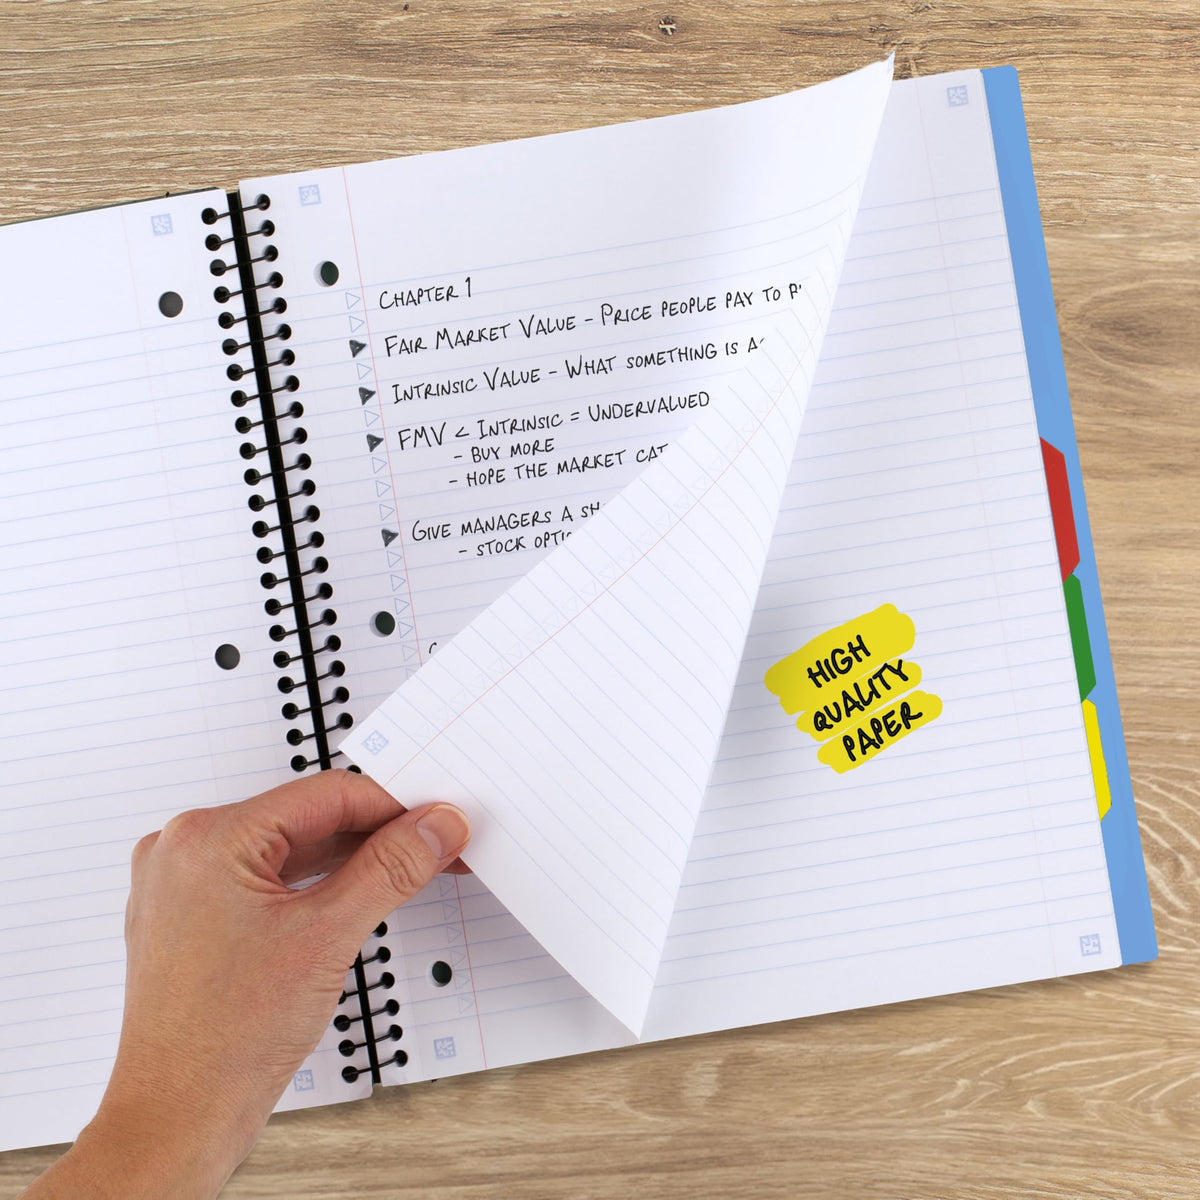 CHAPTER 1
FAIR MARKET VALUE - PRICE PEOPLE PAY TO
INTRINSIC VALUE - WHAT SOMETHING IS
FMV < INTRINSIC = UNDERVALUED
- BUY MORE
- HOPE THE MARKET
GIVE MANAGERS A
- STOCK
HIGH
QUALITY
PAPER